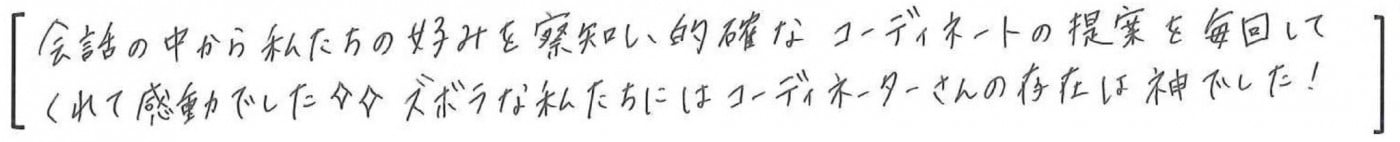 [会話の中から私たちの好みを察知し、的確なコーディネートの提案を毎回して
くれて感動でした✧✧ ズボラな私たちにはコーディネーターさんの存在は神でした!]